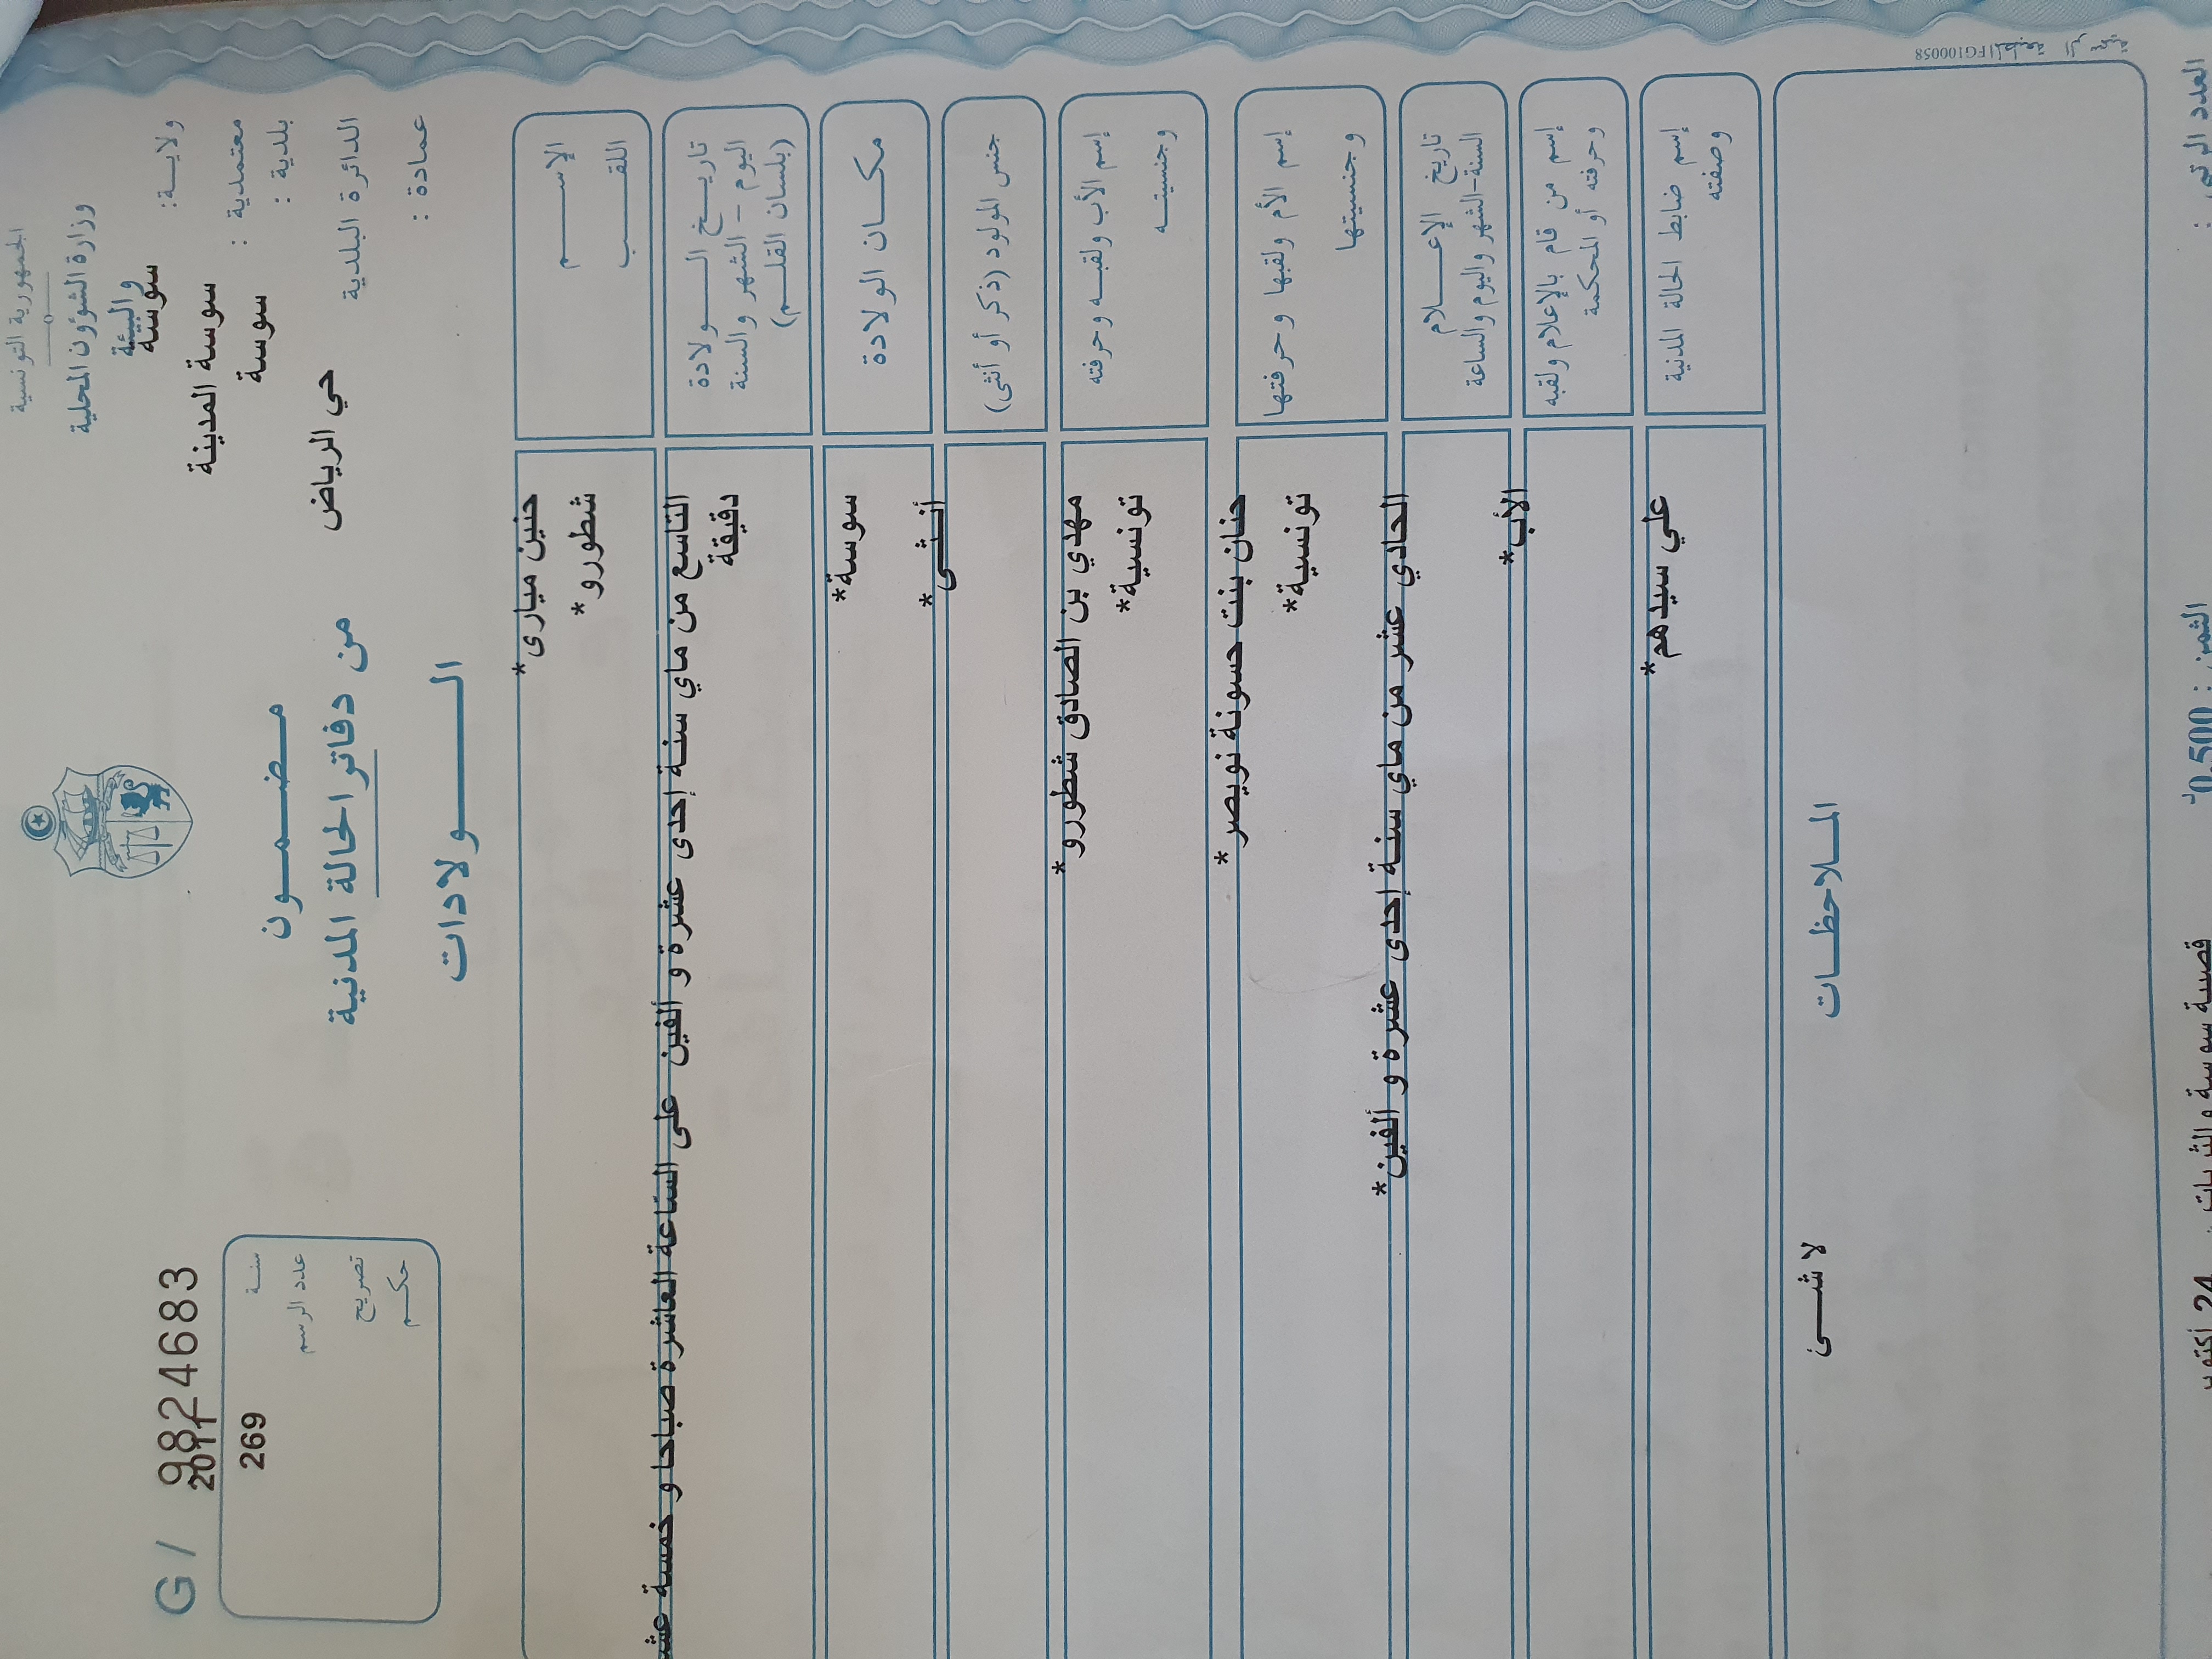 الجمهورية التونسية
وزارة الشؤون المحلية
والبيئة
ولايـــة: سوسة
معتمدية : سوسة المدينة
بلدية : سوسة
الدائرة البلدية حي الرياض
عمادة :
G / 9824683
2011
سنـــة
269
عدد الرسم
تصريح
حكـــم
مـضـمـون
من دفاتر الحالة المدنية
الـــولادات
الإســـم
حنين ميارى*
اللقـــب
شطورو*
تاريـــخ الـــولادة
اليوم - الشهر والسنة
(بلسان القلـــم)
التاسع من ماي سنة إحدى عشرة و ألفين على الساعة العاشرة صباحا و خمسة عش
دقيقة
مكـــان الولادة
سوسة*
جنس المولود (ذكر أو أنثى)
أنـثـى*
إسم الأب ولقبـــه وحرفته
مهدي بن الصادق شطورو*
وجنسيتـــه
تونسية*
إسم الأم ولقبها وحرفتـها
حنان بنت حسونة نويصر*
وجنسيتها
تونسية*
تاريخ الإعـــلام
السنة-الشهر واليوم والساعة
الحادي عشر من ماي سنة إحدى عشرة و ألفين*
إسم من قام بالإعلام ولقبه
وحرفته أو المحكمة
الأب*
إسم ضابط الحالة المدنية
وصفته
علي سيدهم*
المـــلاحظـــات
لا شـــئ
العدد الرتبي :
الثمن : 0,500د
24 أكتوبر
FG100058 المطبعة الرسمية